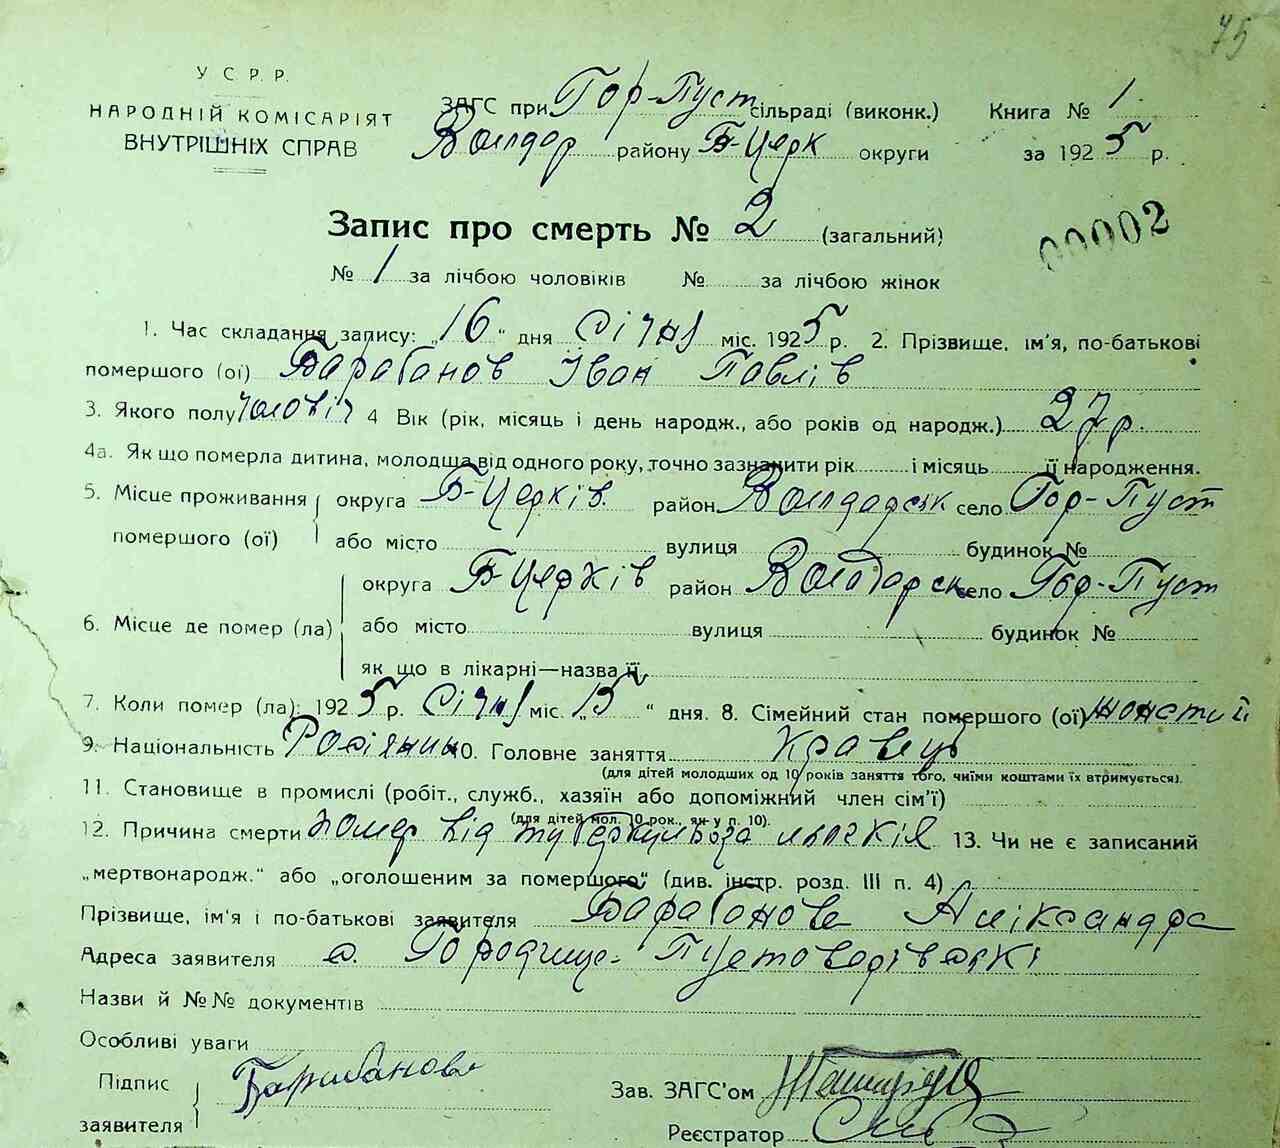 75
У С Р. Р.
НАРОДНІЙ КОМІСАРІЯТ
ВНУТРІШНІХ СПРАВ
ЗАГС при Гор-Пуст сільраді (виконк.) Книга № 1
Волдар району Б-Церк округи за 1925 р.
Запис про смерть № 2 (загальний)
00002
№ 1 за лічбою чоловіків № за лічбою жінок
1. Час складання запису: „16“ дня Січня міс. 1925 р. 2. Прізвище, ім'я, по-батькові
помершого (ої) Барабанов Іван Павлів
3. Якого полу чоловіч 4 Вік (рік, місяць і день народж., або років од народж.) 27 р.
4а. Як що померла дитина, молодша від одного року, точно зазначити рік і місяць її народження.
5. Місце проживання помершого (ої) округа Б-Церків. район Володарськ село Гор-Пуст
або місто вулиця будинок №
6. Місце де помер (ла) округа Б-Церків район Володарськ село Гор-Пуст
або місто вулиця будинок №
як що в лікарні—назва її
7. Коли помер (ла): 1925 р. Січня міс. „15“ дня. 8. Сімейний стан помершого (ої) жонатий
9. Національність Росіянин 10. Головне заняття кравець
(для дітей молодших од 10 років заняття того, чиїми коштами їх втримується).
11. Становище в промислі (робіт., служб., хазяїн або допоміжний член сім'ї)
(для дітей мол. 10 рок., як у п. 10).
12. Причина смерти помер від туберкульоза 13. Чи не є записаний
„мертвонародж.“ або „оголошеним за помершого“ (див. інстр. розд. III п. 4)
Прізвище, ім'я і по-батькові заявителя Барабанова Алексіандра
Адреса заявителя с. Городище-Пустоварівське
Назви й №№ документів
Особливі уваги
Підпис заявителя Барабанова
Зав. ЗАГС'ом
Реєстратор